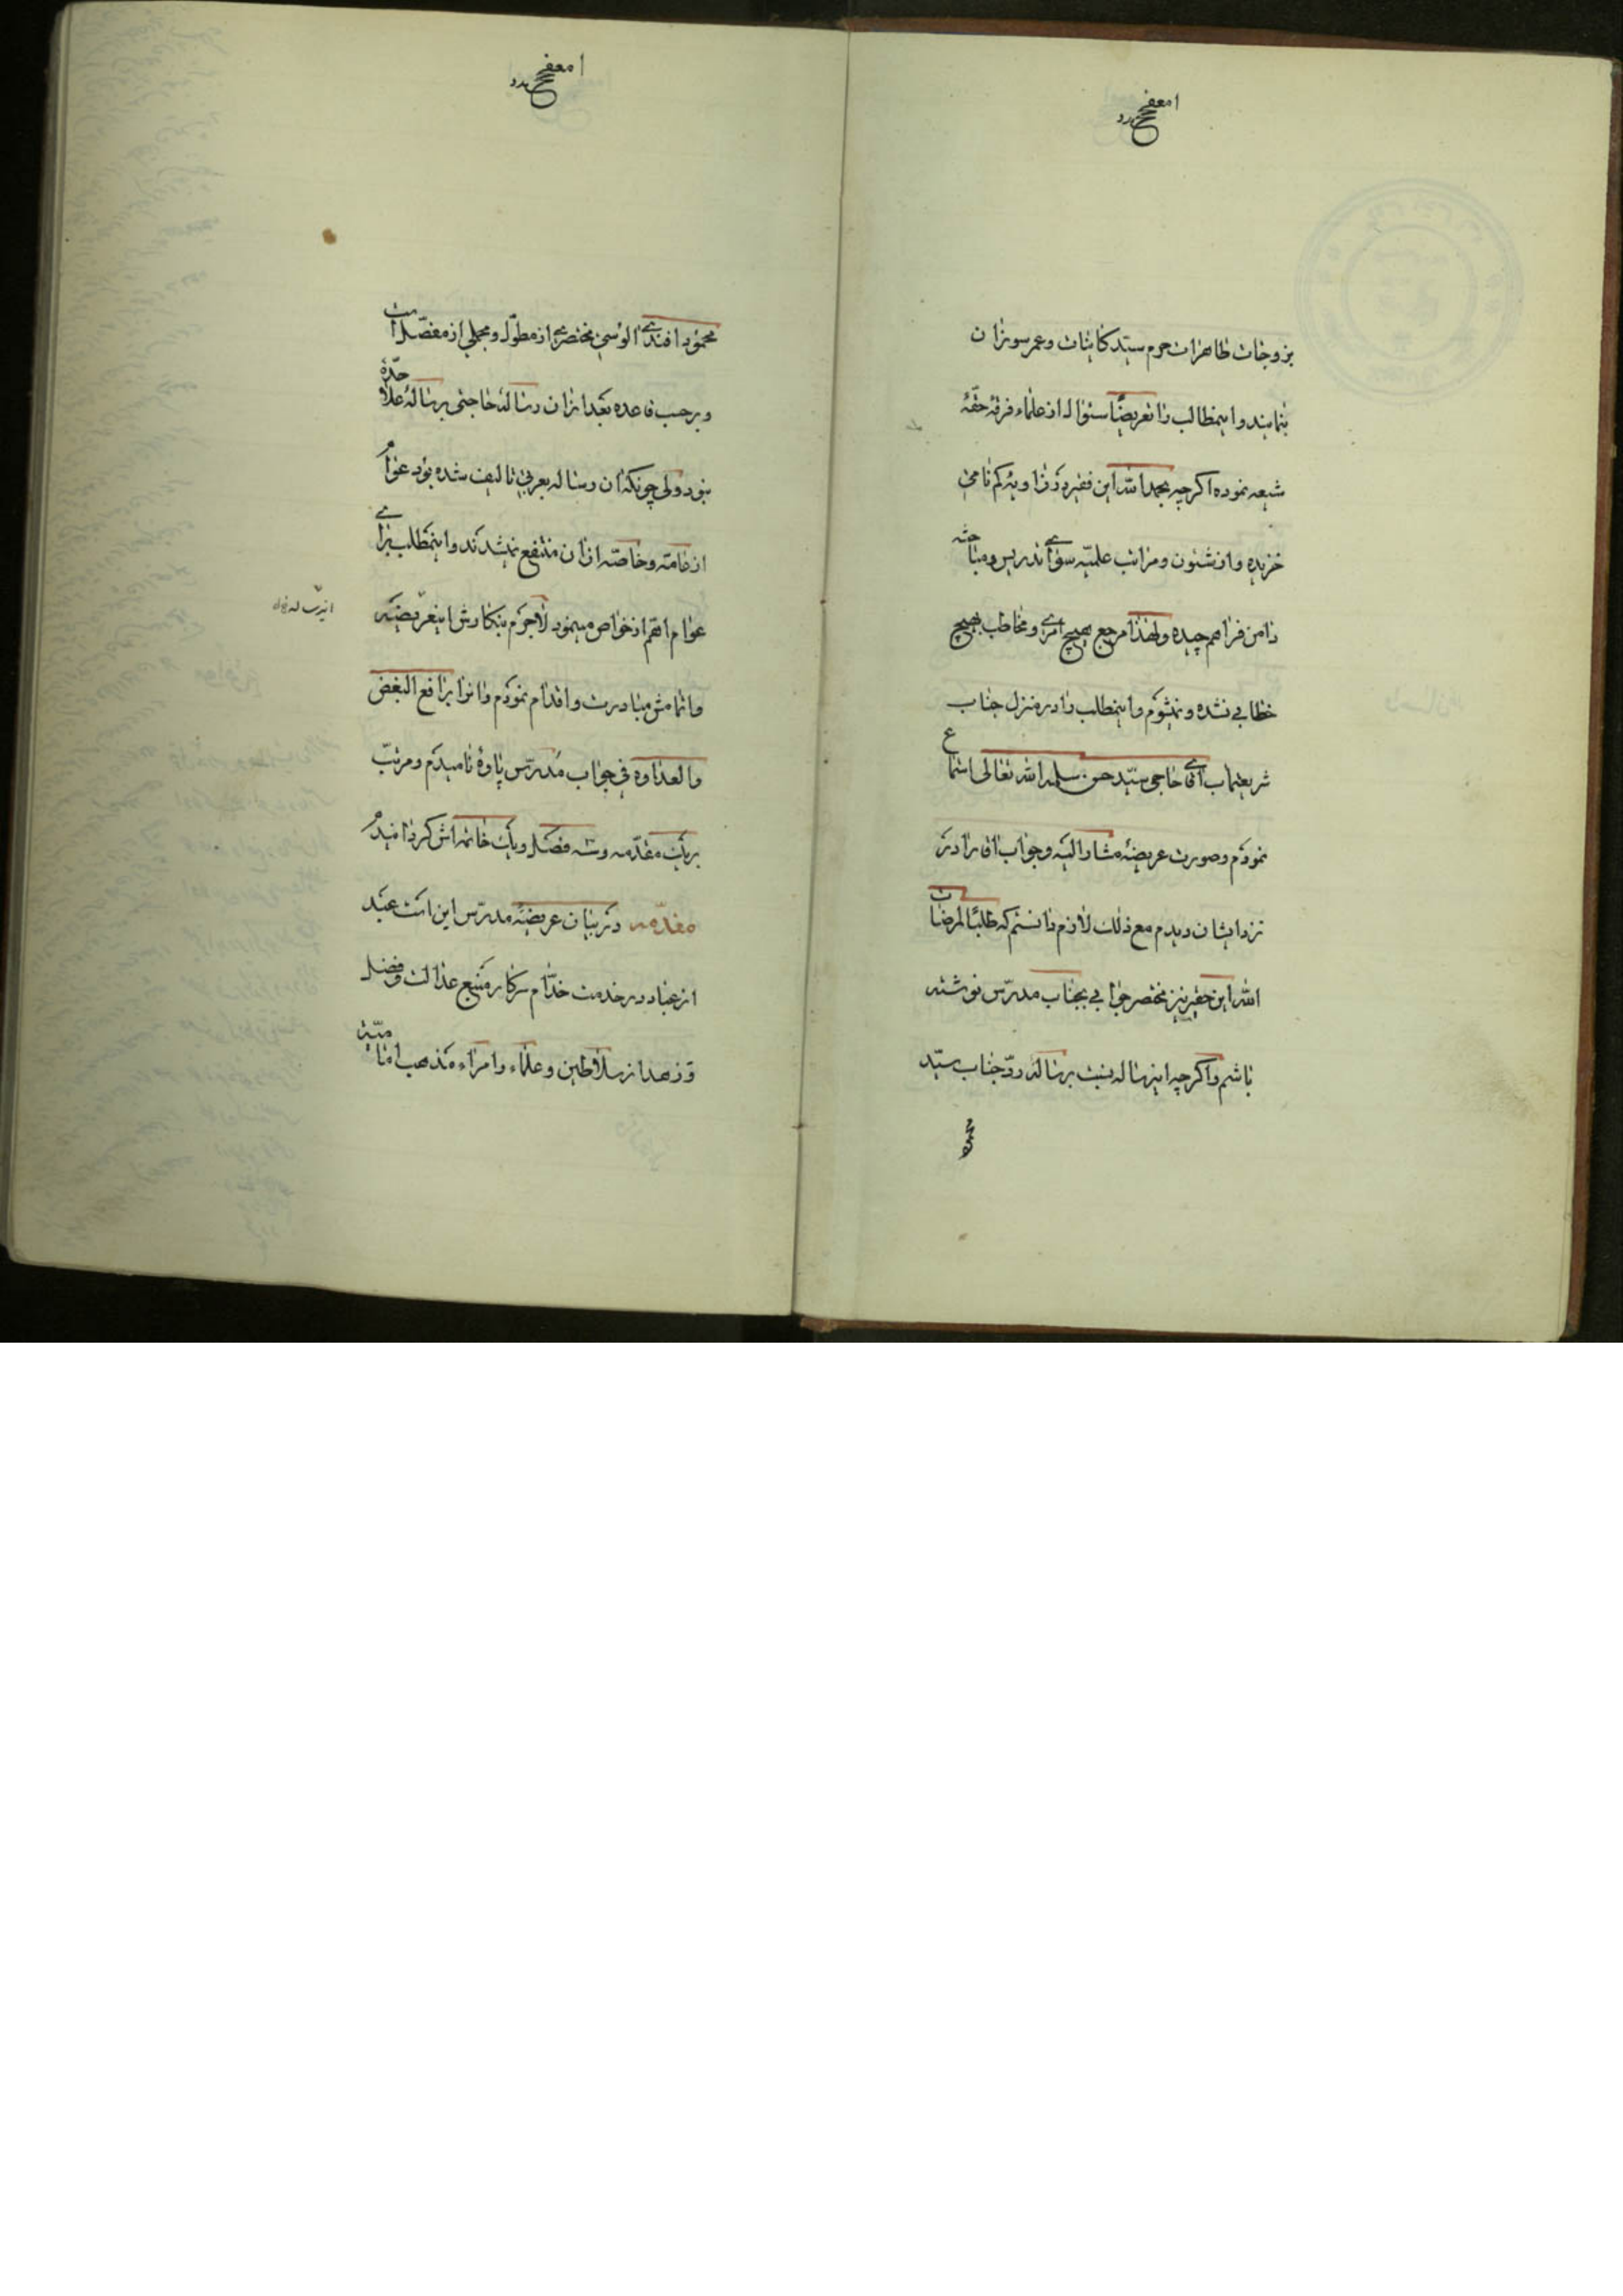 بزوجات طاهرات حرم سید کاینات و عمر سوزان
بنمایند و اینمطالب را تعریضاً سئوال از علماء فرقهٔ حقّهٔ
شیعه نموده اگرچه بحمد الله این فقیر در زاویهٔ گم نامی
خزیده و از شئون و مراتب علمیّه سوای تدریس و مباحثه
دامن فراهم چیده و لهذا مرجع بهیچ امری و مخاطب بهیچ
خطابی نشده و نمیشوم و اینمطلب را در منزل جناب
شریعتمآب آقای حاجی سیّد حسن سلمه الله تعالی استماع
نمودم و صورت عریضهٔ مشار الیه و جواب آقا را در
نزد ایشان دیدم مع ذلک لازم دانستم که طلباً لمرضات
الله این حقیر نیز مختصر جوابی بجناب مدرّس نوشته
باشم و اگرچه اینرساله نسبت برسالهٔ ردّ جناب سیّد
محمود افندی الوسی مختصری از مطوّل و مجملی از مفصّل است
و برحسب قاعده بعد از آن رساله حاجتی برسالهٔ علاحدّهٔ
نبود ولی چونکه آن رساله بعربی تالیف شده بود عوام
از عامّه و خاصّه از آن منتفع نمیشدند و اینمطلب برای
عوام اهمّ از خواص مینمود لاجرم بنگارش اینعریضه
و اتمامش مبادرت و اقدام نمودم و آنرا برافع البغض
و العداوه فی جواب مدرّس پاوه نامیدم و مرتّب
بریک مقدّمه و سه فصل و یک خاتمه اش گردانیدم
مقدّمه در بیان عریضهٔ مدرّس این است عبد
از عباد در خدمت خدّام سرکار منبع عدالت و فضل
و زهد از سلاطین و علماء و امراء مذهب امامیّه